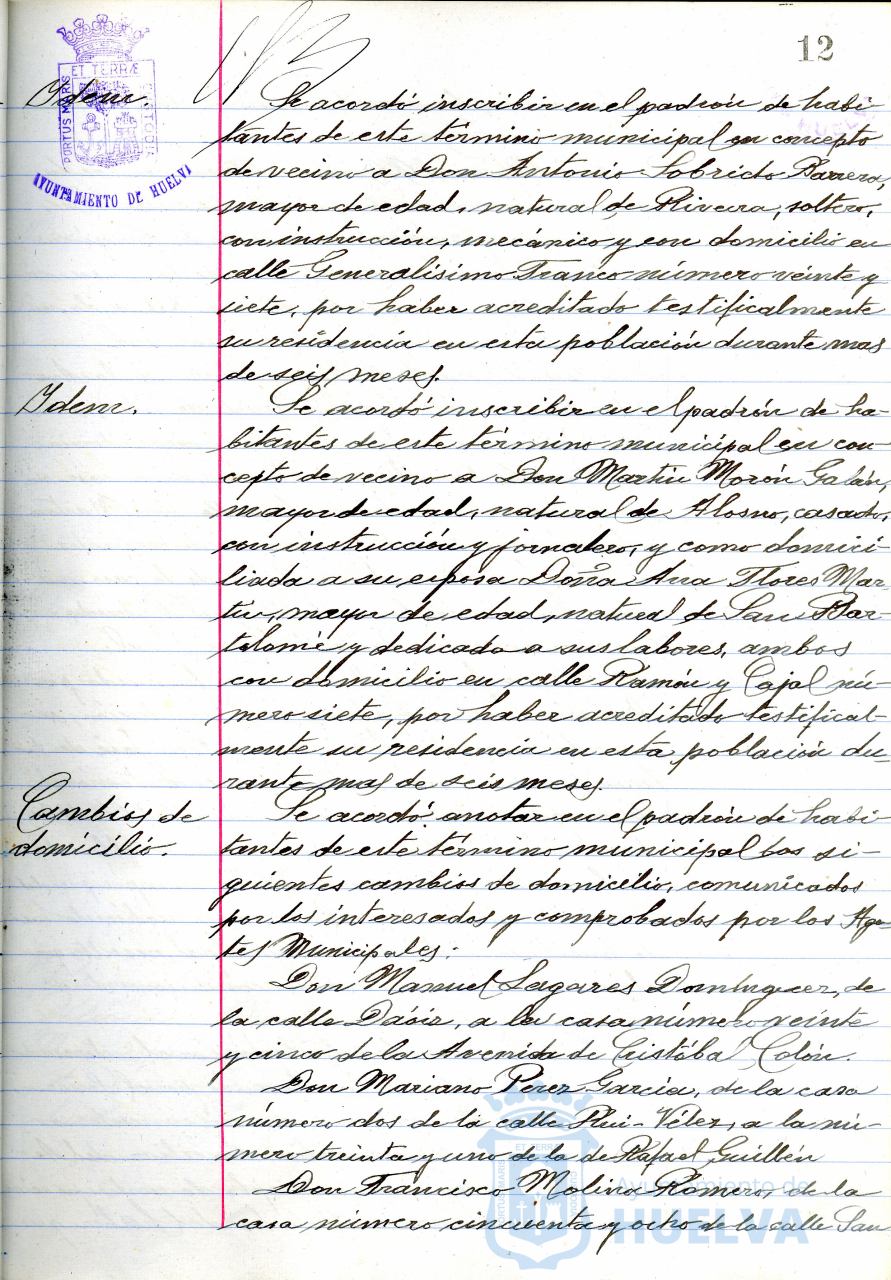 12
ET TERRÆ
PORTUS MARIS
CUSTODIA
AYUNTAMIENTO DE HUELVA
Idem.
Se acordó inscribir en el padrón de habi-
tantes de este término municipal en concepto
de vecino a Don Antonio Sobrido Barrera,
mayor de edad, natural de Riveira, soltero,
con instrucción, mecánico y con domicilio en
calle Generalísimo Franco número veinte y
siete, por haber acreditado testificalmente
su residencia en esta población durante mas
de seis meses.
Idem.
Se acordó inscribir en el padrón de ha-
bitantes de este término municipal en con-
cepto de vecino a Don Martin Morón Galán,
mayor de edad, natural de Alosno, casado,
con instrucción y jornalero, y como domici-
liada a su esposa Doña Ana Flores Mar-
tin, mayor de edad, natural de San Bar-
tolomé y dedicada a sus labores, ambos
con domicilio en calle Ramón y Cajal nú-
mero siete, por haber acreditado testifical-
mente su residencia en esta población du-
rante mas de seis meses.
Cambios de
domicilio.
Se acordó anotar en el padrón de habi-
tantes de este término municipal los si-
guientes cambios de domicilio, comunicados
por los interesados y comprobados por los Agen-
tes Municipales:
Don Manuel Lagares Dominguez, de
la calle Daóiz, a la casa número veinte
y cinco de la Avenida de Cristóbal Colón.
Don Mariano Pérez García, de la casa
número dos de la calle Rui-Vélez, a la nú-
mero treinta y uno de la de Rafael Guillén
Don Francisco Molina Romero, de la
casa número cincuenta y ocho de la calle San
Ayuntamiento de
HUELVA